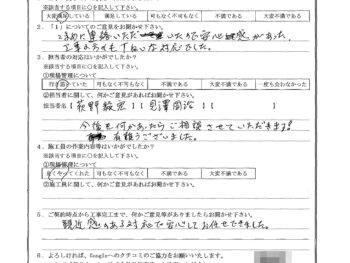 ※該当する項目に○を記入して下さい。
大変満足している 満足している 可もなく不可もなく 不満である 大変不満である
2．「1」についてのご意見をお聞かせ下さい。
こまめに連絡いただいたので安心感があった。
工事の方も丁ねいな対応でした。
3．担当者の対応はいかがでしたか？
※該当する項目に○を記入して下さい。
①現場管理について
行き届いていた 可もなく不可もなく 不満である 大変不満である 一度も会わなかった
②担当者に関して、何かご意見があればお聞かせ下さい。
担当者名【荻野綾宏】【見澤周治】【 】
今後も何かあったらご相談させていただきます!
有難うございました。
4．施工員の作業内容等はいかがでしたか？
※該当する項目に○を記入して下さい。
①現場管理について
良くやってくれた 可もなく不可もなく 不満である 大変不満である
②施工員に関して、何かご意見があればお聞かせ下さい。
5．ご契約時点から工事完工まで、何かご意見等がありましたらお聞かせ下さい。
親近感のある対応で安心してお任せできました。
6．よろしければ、Googleへのクチコミのご協力をお願いいたします。